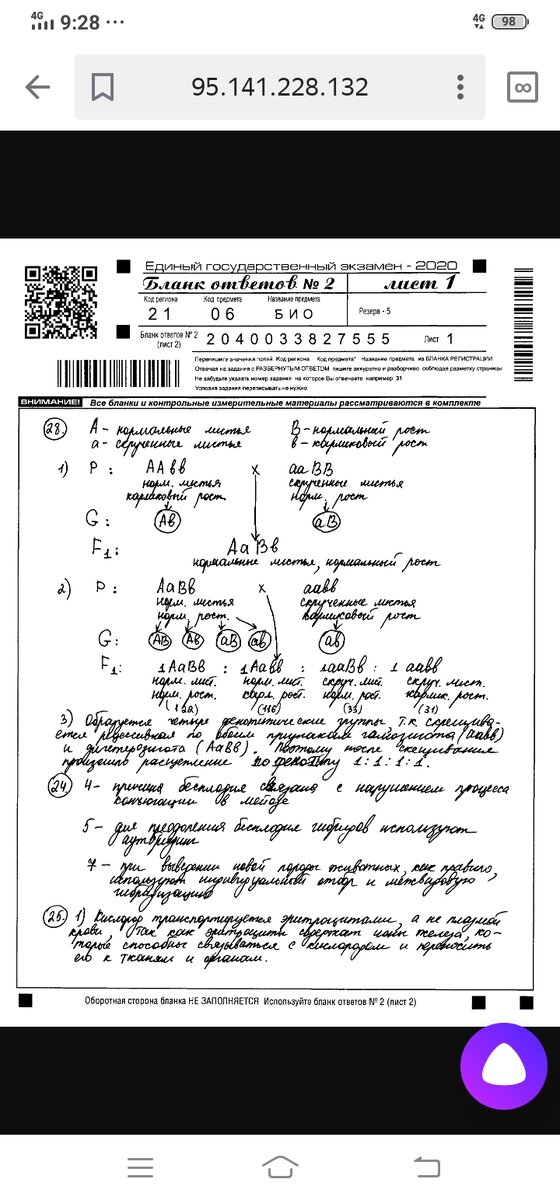 4G 9:28 ... 4G 98
95.141.228.132
Единый государственный экзамен - 2020
Бланк ответов № 2 лист 1
Код региона Код предмета Название предмета
21 06 БИО Резерв - 5
Бланк ответов № 2 (лист 2) 2040033827555 Лист 1
Перепишите значения полей Код региона Код предмета Название предмета из БЛАНКА РЕГИСТРАЦИИ
Отвечая на задания с РАЗВЕРНУТЫМ ОТВЕТОМ пишите аккуратно и разборчиво соблюдая разметку страницы
Не забудьте указать номер задания на которое Вы отвечаете например 31
Условия задания переписывать не нужно
ВНИМАНИЕ! Все бланки и контрольные измерительные материалы рассматриваются в комплекте
28. А - нормальные листья В - нормальный рост
а - скрученные листья в - карликовый рост
1) Р: ААвв х ааВВ
норм. листья скрученные листья
карликовый рост норм. рост
G: Ав аВ
F1: АаВв
нормальные листья, нормальный рост
2) Р: АаВв х аавв
норм. листья скрученные листья
норм. рост. карликовый рост
G: АВ Ав аВ ав ав
F1: 1АаВв : 1Аавв : 1ааВв : 1 аавв
норм. лист. норм. лист. скруч. лист. скруч. лист.
норм. рост. карл. рост. норм. рост. карлик. рост.
(116) (33) (31)
3) Образуется четыре фенотипические группы т.к скрещива-
ется рецессивная по обоим признакам гомозигота (аавв)
и дигетерозигота (АаВв). Поэтому после скрещивания
произошло расщепление по фенотипу 1:1:1:1.
24 4 - причина бесплодия связана с нарушением процесса
конъюгации в мейозе
5 - для преодоления бесплодия гибридов используют
7 - при выведении новой породы животных, как правило,
используют индивидуальный отбор и межвидовую
гибридизацию
25. 1) Кислород транспортируется эритроцитами, а не плазмой
крови, так как эритроциты содержат ионы железа, ко-
торые способны связываться с кислородом и переносить
его к тканям и органам.
Оборотная сторона бланка НЕ ЗАПОЛНЯЕТСЯ Используйте бланк ответов № 2 (лист 2)